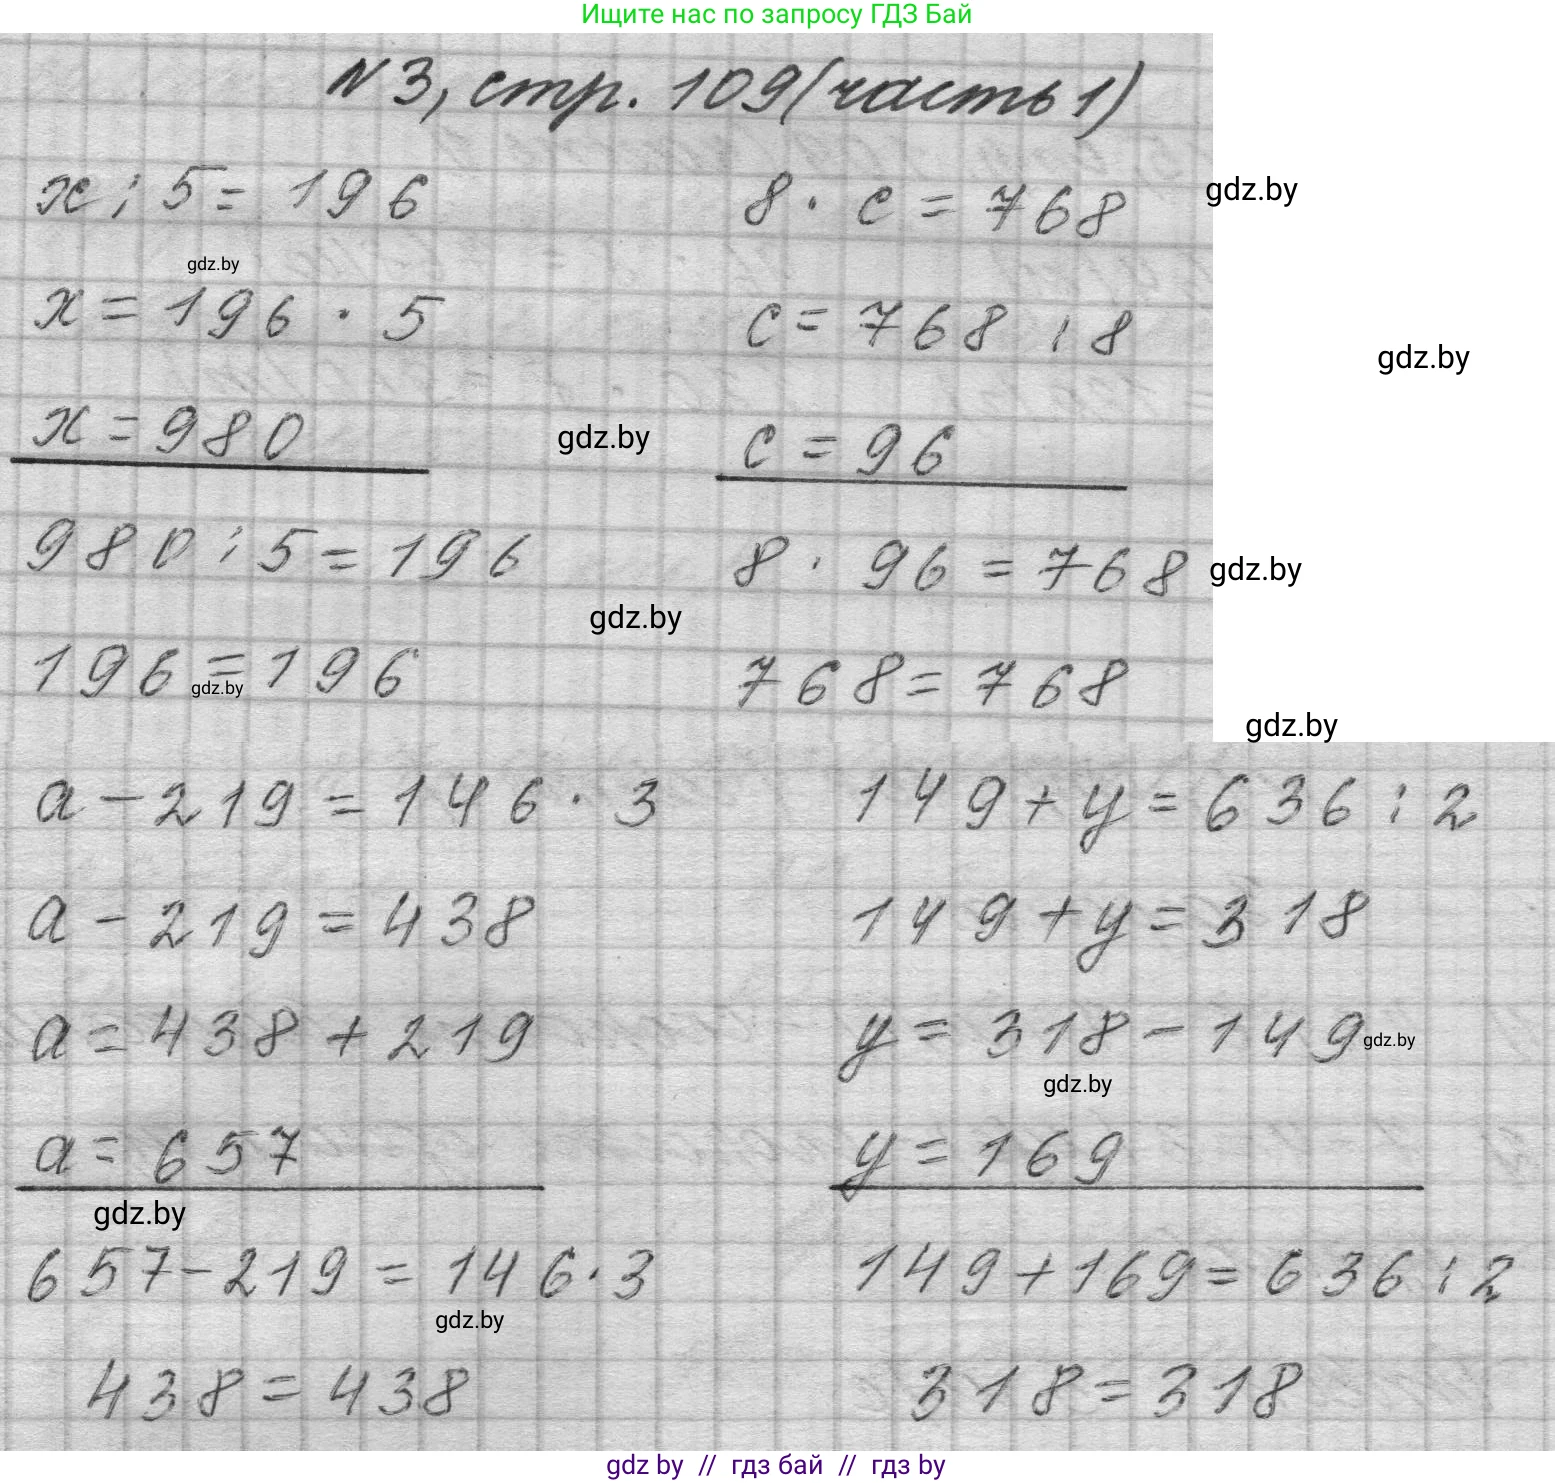 Ищите нас по запросу ГДЗ Бай
N 3, стр. 109 (часть 1)
x : 5 = 196
gdz.by
x = 196 · 5
x = 980
980 : 5 = 196
196 = 196
gdz.by
8 · c = 768
gdz.by
c = 768 : 8
gdz.by
c = 96
gdz.by
8 · 96 = 768
gdz.by
gdz.by
768 = 768
gdz.by
a - 219 = 146 · 3
a - 219 = 438
a = 438 + 219
a = 657
gdz.by
657 - 219 = 146 · 3
gdz.by
438 = 438
149 + y = 636 : 2
149 + y = 318
y = 318 - 149
gdz.by
gdz.by
y = 169
149 + 169 = 636 : 2
318 = 318
gdz by // гдз бай // гдз by